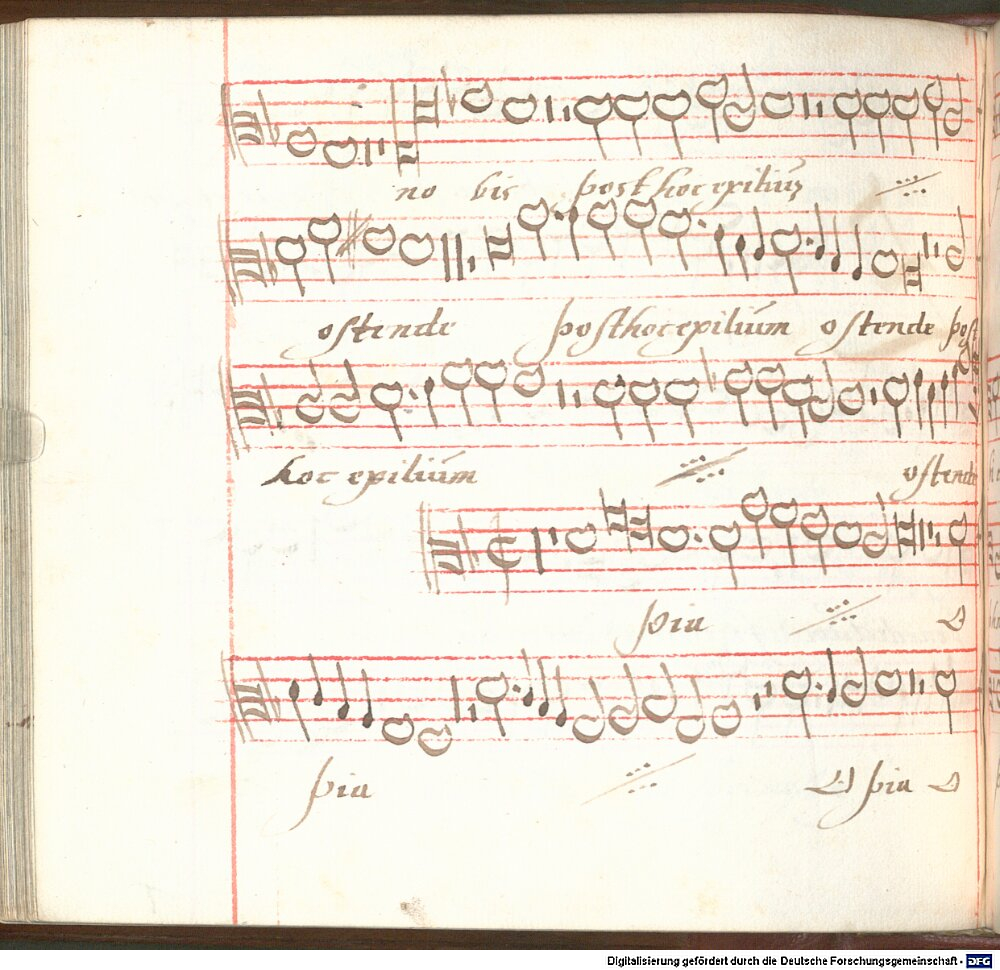 no bis post hoc exiliũ
ostende posthocexiliũm ostende post
hoc exiliũm ostende
pia O
pia O pia O
Digitalisierung gefördert durch die Deutsche Forschungsgemeinschaft - DFG